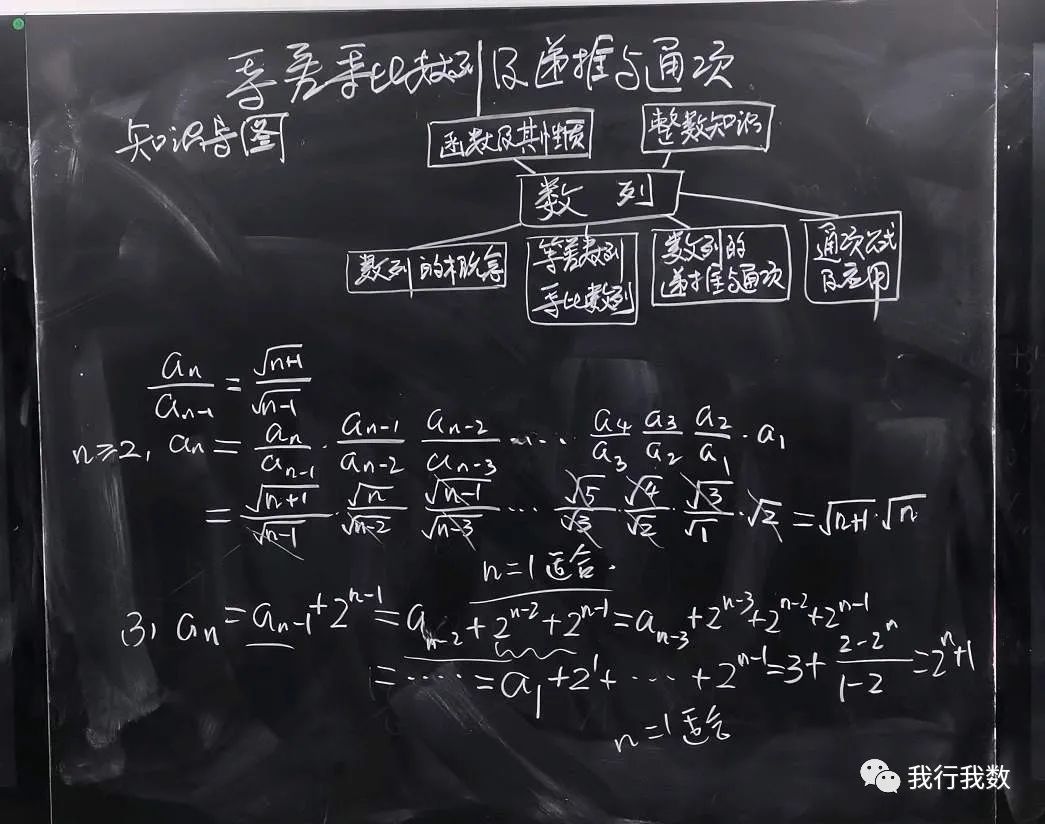 等差等比数列及递推与通项
知识导图
函数及其性质
整数知识
数 列
数列的概念
等差数列
等比数列
数列的
递推与通项
通项公式
及应用
a_n/a_{n-1} = √(n+1)/√(n-1)
n≥2, a_n = a_n/a_{n-1} · a_{n-1}/a_{n-2} a_{n-2}/a_{n-3} ····· a_4/a_3 a_3/a_2 a_2/a_1 · a_1
= √(n+1)/√(n-1) · √n/√(n-2) √(n-1)/√(n-3) ··· √5/√3 · √4/√2 · √3/√1 · √2 = √(n+1) · √n
n=1适合.
3, a_n = a_{n-1} + 2^{n-1} = a_{n-2} + 2^{n-2} + 2^{n-1} = a_{n-3} + 2^{n-3} + 2^{n-2} + 2^{n-1}
= ····· = a_1 + 2^1 + ···· + 2^{n-1} = 3 + (2-2^n)/(1-2) = 2^n+1
n=1适合
我行我数